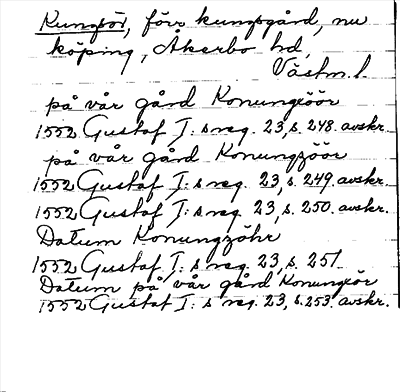 Kungsör, förr kungsgård, nu
köping, Åkerbo hd,
Västm. l.
på vår gård Konungzöör
1552 Gustaf I: s reg. 23, s. 248. avskr.
på vår gård Konungzöör
1552 Gustaf I: s reg. 23, s. 249. avskr.
1552 Gustaf I: s reg. 23, s. 250. avskr.
Datum Konungzöhr
1552 Gustaf I: s reg. 23, s. 251.
Datum på vår gård Konungzör
1552 Gustaf I: s reg. 23, s. 253. avskr.